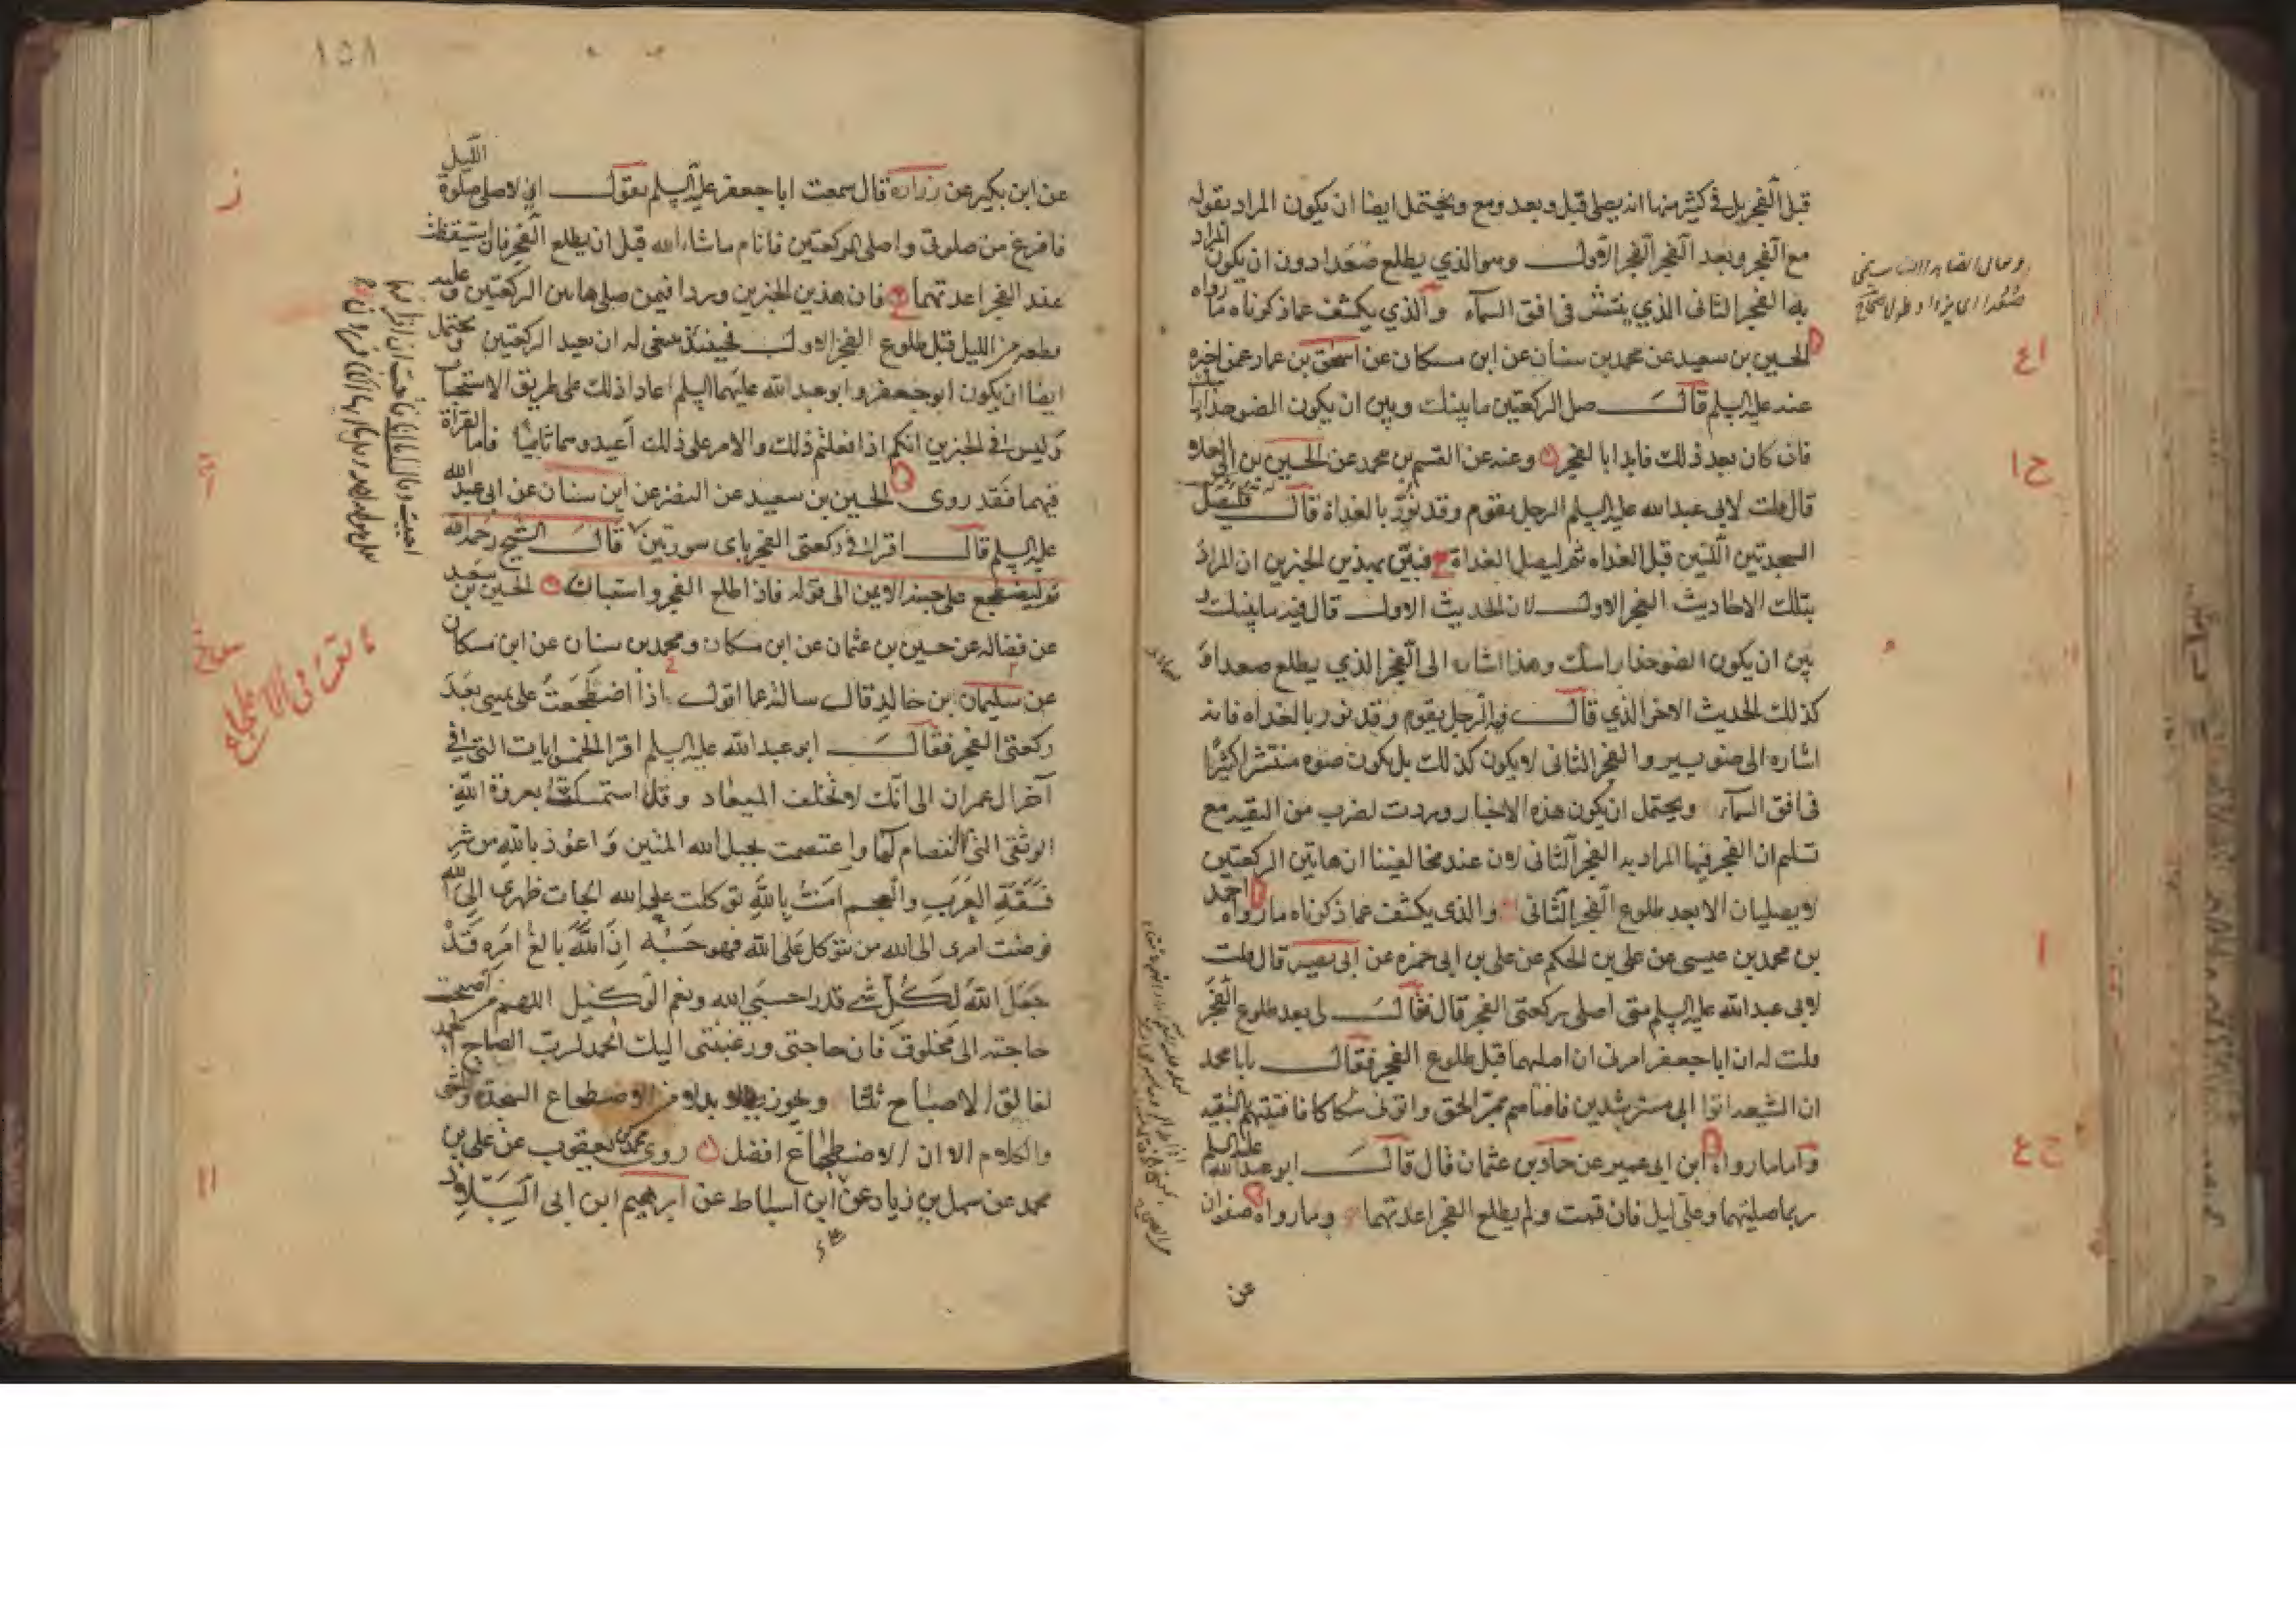 قبل الفجر بل في كثير منها انه يصلي قبل وبعد ومع ويحتمل ايضا ان يكون المراد بقوله
مع الفجر وبعد الفجر الفجر الاول وهو الذي يطلع صعدا دون ان يكون المراد
به الفجر الثاني الذي ينتشر في افق السماء والذي يكشف عما ذكرناه ما رواه
الحسين بن سعيد عن محمد بن سنان عن ابن مسكان عن اسحق بن عمار عمن اخبره
عنه عليه السلم قال صل الركعتين ما بينك وبين ان يكون الضوء حذاء راسك
فان كان بعد ذلك فابدا بالفجر وعنه عن القسم بن محمد عن الحسين بن ابي العلا
قال قلت لابي عبدالله عليه السلم الرجل يقوم وقد نور بالغداة قال فليصل
السجدتين اللتين قبل الغداه ثم ليصل الغداة فبين بهذين الخبرين ان المراد
بتلك الاحاديث الفجر الاول لان الحديث الاول قال فيه ما بينك و
بين ان يكون الضوء حذا راسك وهذا اشاره الى الفجر الذي يطلع صعدا و
كذلك الحديث الاخر الذي قال فيه الرجل يقوم وقد نور بالغداه فانه
اشاره الى ضوء يسير والفجر الثاني لا يكون كذلك بل يكون ضوءه منتشرا كثيرا
في افق السماء ويحتمل ان يكون هذه الاخبار وردت لضرب من التقيه مع
تسليم ان الفجر فيها المراد به الفجر الثاني لان عند مخالفينا ان هاتين الركعتين
لا يصليان الا بعد طلوع الفجر الثاني والذي يكشف عما ذكرناه ما رواه احمد
بن محمد بن عيسى عن علي بن الحكم عن علي بن ابي حمزه عن ابي بصير قال قلت
لابي عبد الله عليه السلم متى اصلي ركعتي الفجر قال فقال لي بعد طلوع الفجر
قلت له ان ابا جعفر امرني ان اصليهما قبل طلوع الفجر فقال يا با محمد
ان الشيعه اتوا ابي مسترشدين فافتاهم بمر الحق واتوني شكاكا فافتيتهم بالتقيه
واما ما رواه ابن ابي عمير عن حماد بن عثمان قال قال ابو عبدالله عليه السلم
ربما صليتهما وعلي ليل فان قمت ولم يطلع الفجر اعدتهما وما رواه صفوان
عن
١٥٨
عن ابن بكير عن زراره قال سمعت ابا جعفر عليه السلم يقول اني لاصلي صلوة الليل
فافرغ من صلوتي واصلي الركعتين فانام ماشاء الله قبل ان يطلع الفجر فان استيقظت
عند الفجر اعدتهما فان هذين الخبرين وردا فيمن صلى هاتين الركعتين وعليه
قطعه من الليل قبل طلوع الفجر الاول فحينئذ ينبغي له ان يعيد الركعتين ويحتمل
ايضا ان يكون ابو جعفر وابو عبد الله عليهما السلم اعادا ذلك على طريق الاستحباب
وليس في الخبرين انكم اذا فعلتم ذلك والامر على ذلك اعيدوهما ثانيا فاما القراة
فيهما فقد روى الحسين بن سعيد عن النضر عن ابن سنان عن ابي عبد الله
عليه السلم قال اقرا في ركعتي الفجر باي سورتين قال الشيخ رحمه الله
ثم ليضطجع على جنبه الايمن الى قوله فاذا طلع الفجر واستبان الحسين بن سعيد
عن فضاله عن حسين بن عثمان عن ابن مسكان ومحمد بن سنان عن ابن مسكان
عن سليمان بن خالد قال سالته عما اقول اذا اضطجعت على يميني بعد
ركعتي الفجر فقال ابو عبد الله عليه السلم اقرا الخمس ايات التي في
آخر ال عمران الى انك لا تخلف الميعاد وقل استمسكت بعروة الله
الوثقى التي لا انفصام لها واعتصمت بحبل الله المتين واعوذ بالله من شر
فسقة العرب والعجم امنت بالله توكلت على الله الجات ظهري الى الله
فوضت امري الى الله من يتوكل على الله فهو حسبه ان الله بالغ امره قد
جعل الله لكل شي قدرا حسبي الله ونعم الوكيل اللهم من اصبحت
حاجته الى مخلوق فان حاجتي ورغبتي اليك الحمد لرب الصباح الحمد
لفالق الاصباح ثلثا ويجوز بدلا من الاضطجاع السجدة والمشي
والكلام الا ان الاضطجاع افضل روى محمد بن يعقوب عن علي بن
محمد عن سهل بن زياد عن ابن اسباط عن ابرهيم ابن ابي البلاد